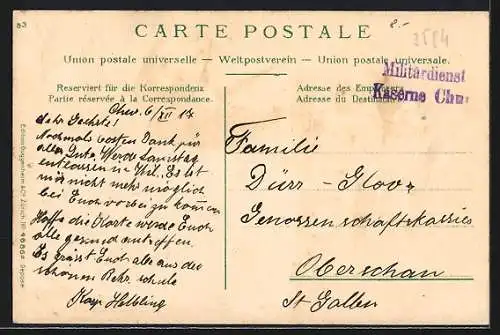 83
8.-
3584
CARTE POSTALE
Union postale universelle — Weltpostverein — Union postale universale.
Militärdienst
Kaserne Chur
Reserviert für die Korrespondenz
Partie réservée à la Correspondance.
Adresse des Empfängers
Adresse du Destinataire
Chur, 6/XII 17
Nochmals besten Dank für
alles Gute. Werde Samstag
entlassen in Wil. Es ist
mir nicht mehr möglich
bei Euch vorbei zu kommen
Hoffe die Karte werde Euch
alle gesund antreffen.
Es grüsst Euch alle aus der
schönen Rekr. schule
Helbling
Familie
Dürr-
Genossenschaftskassier
Oberschan
St Gallen
Edition Guggenheim & Co Zürich No 4686 Deposé